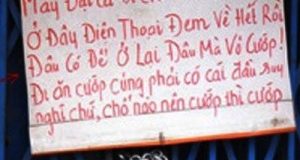 Mấy Đại Ca
Ở Đây Điện Thoại Đem Về Hết Rồi
Đâu Có Để Ở Lại Đâu Mà Vô Cướp!
Đi ăn cướp cũng phải có cái đầu suy
nghĩ chứ, chỗ nào nên cướp thì cướp